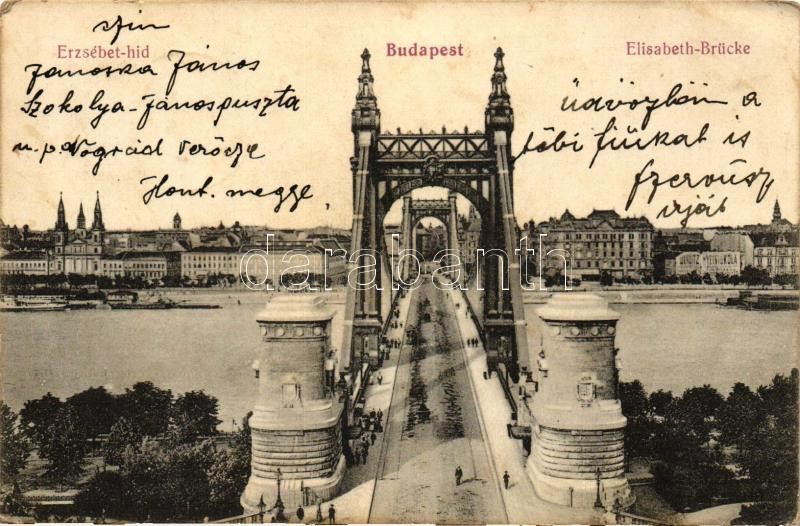 szin
Erzsébet-hid
Budapest
Elisabeth-Brücke
Janoska János
Szokolya-Jánospuszta
u.p. Nógrád Verőcze
Hont. megye.
üdvözlöm a
többi fiúkat is
szervusz
irját
darabanth